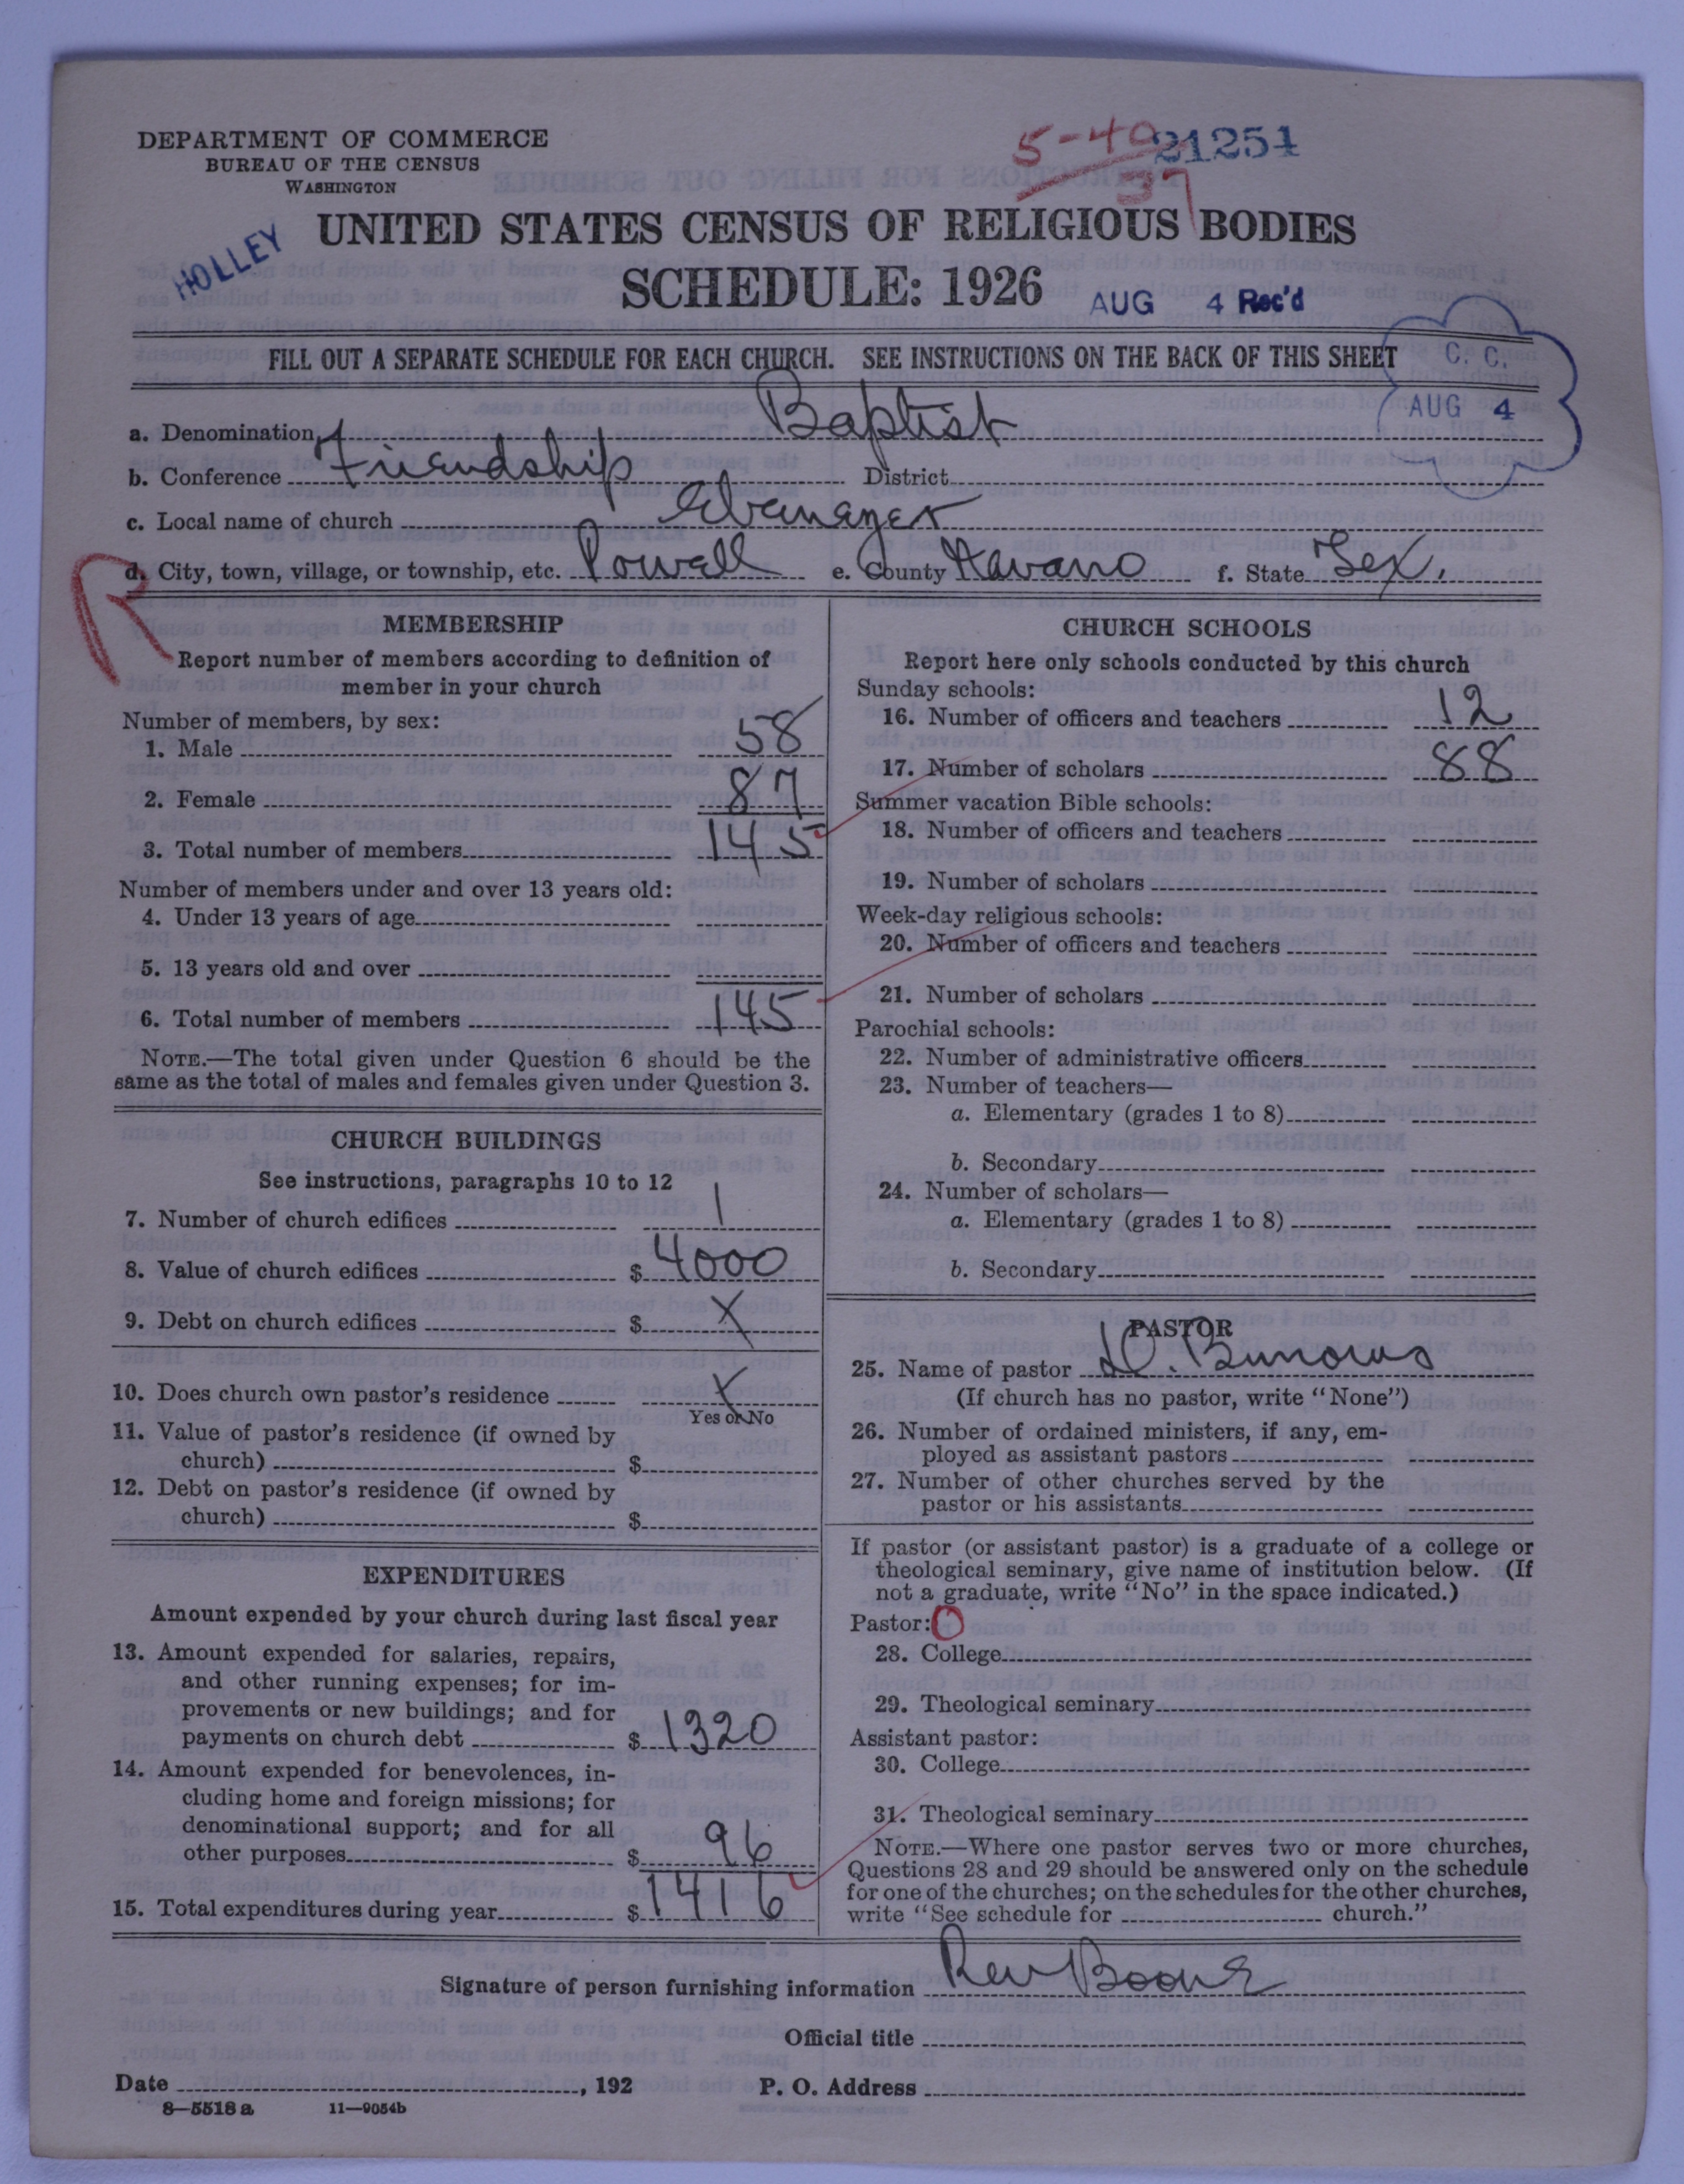 DEPARTMENT OF COMMERCE
BUREAU OF THE CENSUS
WASHINGTON
5-40 21251
37
HOLLEY
UNITED STATES CENSUS OF RELIGIOUS BODIES
SCHEDULE: 1926
AUG 4 Rec'd
FILL OUT A SEPARATE SCHEDULE FOR EACH CHURCH. SEE INSTRUCTIONS ON THE BACK OF THIS SHEET
C. C.
AUG 4
a. Denomination Baptist
b. Conference Friendship District
c. Local name of church Ebenayer
d. City, town, village, or township, etc. Powell e. County Navaro f. State Tex.
R
MEMBERSHIP
Report number of members according to definition of
member in your church
Number of members, by sex:
1. Male 58
2. Female 87
3. Total number of members 145
Number of members under and over 13 years old:
4. Under 13 years of age
5. 13 years old and over
6. Total number of members 145
NOTE.—The total given under Question 6 should be the
same as the total of males and females given under Question 3.
CHURCH BUILDINGS
See instructions, paragraphs 10 to 12
7. Number of church edifices 1
8. Value of church edifices $ 4000
9. Debt on church edifices $ X
10. Does church own pastor's residence X
Yes or No
11. Value of pastor's residence (if owned by
church) $
12. Debt on pastor's residence (if owned by
church) $
EXPENDITURES
Amount expended by your church during last fiscal year
13. Amount expended for salaries, repairs,
and other running expenses; for im-
provements or new buildings; and for
payments on church debt $ 1320
14. Amount expended for benevolences, in-
cluding home and foreign missions; for
denominational support; and for all
other purposes $ 96
15. Total expenditures during year $ 1416
CHURCH SCHOOLS
Report here only schools conducted by this church
Sunday schools:
16. Number of officers and teachers 12
17. Number of scholars 88
Summer vacation Bible schools:
18. Number of officers and teachers
19. Number of scholars
Week-day religious schools:
20. Number of officers and teachers
21. Number of scholars
Parochial schools:
22. Number of administrative officers
23. Number of teachers—
a. Elementary (grades 1 to 8)
b. Secondary
24. Number of scholars—
a. Elementary (grades 1 to 8)
b. Secondary
PASTOR
25. Name of pastor
(If church has no pastor, write "None")
26. Number of ordained ministers, if any, em-
ployed as assistant pastors
27. Number of other churches served by the
pastor or his assistants
If pastor (or assistant pastor) is a graduate of a college or
theological seminary, give name of institution below. (If
not a graduate, write "No" in the space indicated.)
Pastor: O
28. College
29. Theological seminary
Assistant pastor:
30. College
31. Theological seminary
NOTE.—Where one pastor serves two or more churches,
Questions 28 and 29 should be answered only on the schedule
for one of the churches; on the schedules for the other churches,
write "See schedule for church."
Signature of person furnishing information Rev Boone
Official title
Date , 192 P. O. Address
8—5518 a 11—9054b